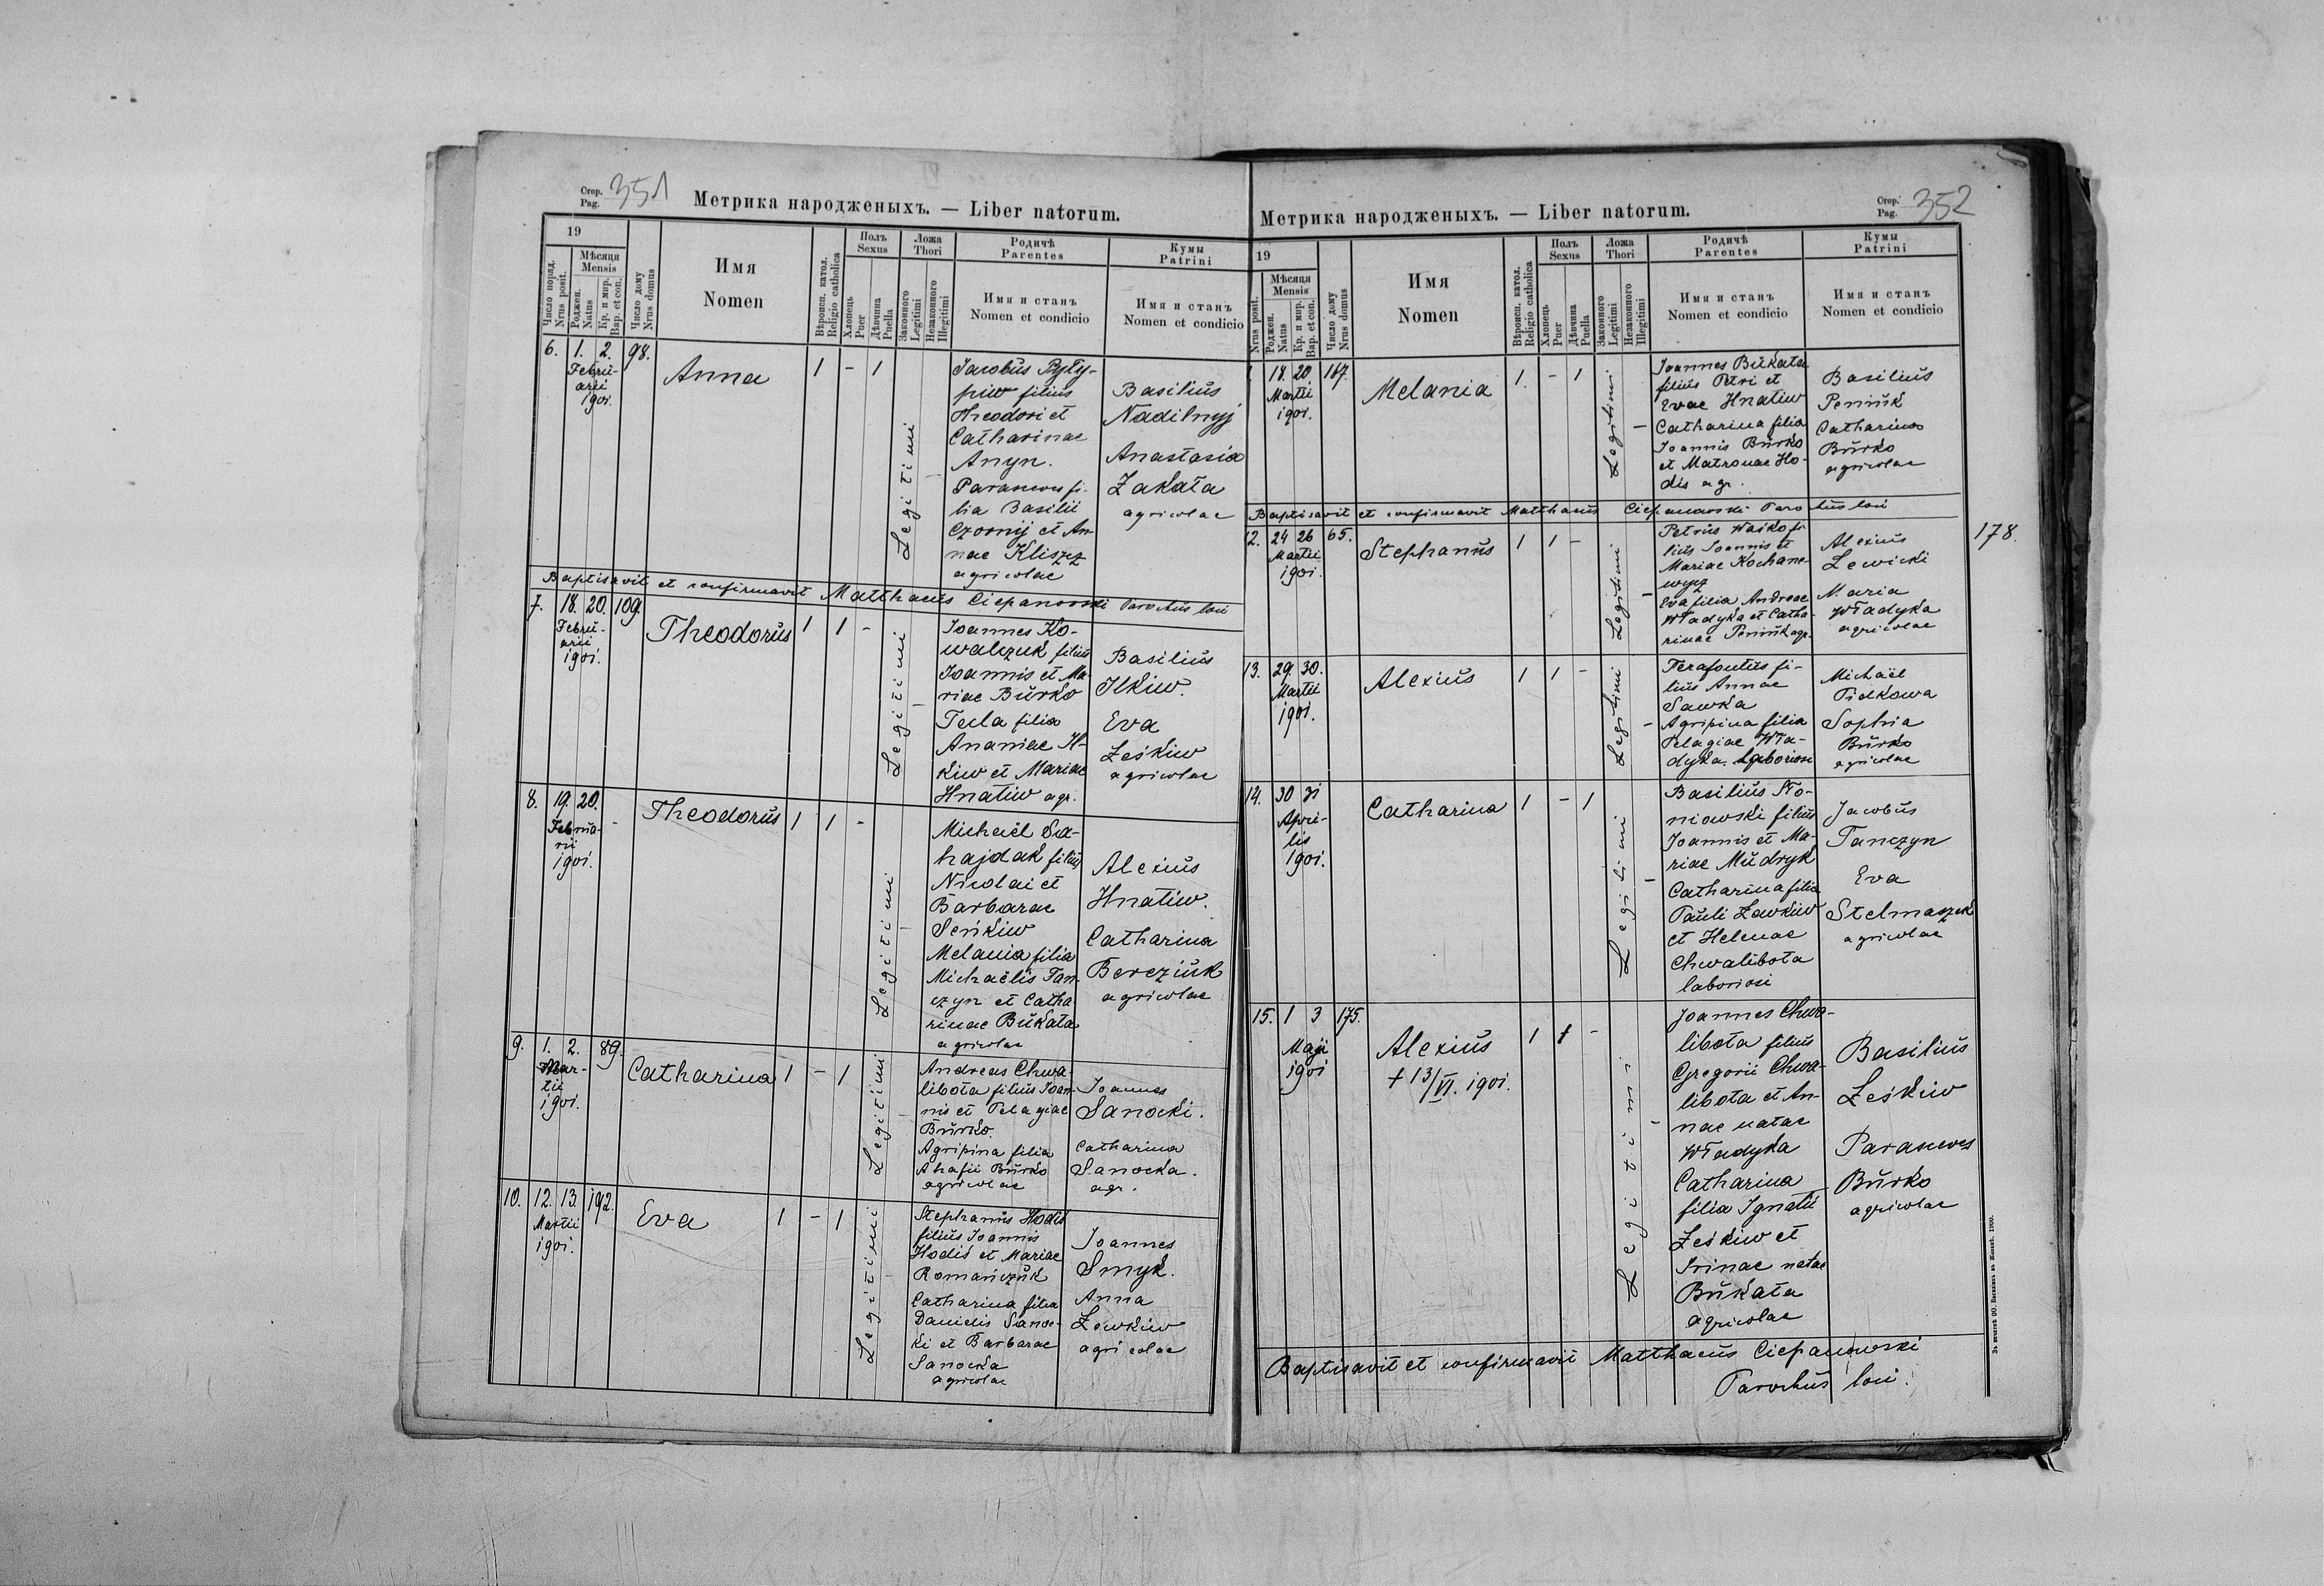 Стор.
Pag.
351
Метрика народженыхъ. — Liber natorum.
19
Число поряд.
Nrus posit.
Мѣсяця
Mensis
Роджен.
Natus
Кр. и мир.
Bap. et con.
Число дому
Nrus domus
Имя
Nomen
Вѣроисп. катол.
Religio catholica
Полъ
Sexus
Хлопець
Puer
Дѣвчина
Puella
Ложа
Thori
Законного
Legitimi
Незаконного
Illegitimi
Родичѣ
Parentes
Имя и станъ
Nomen et condicio
Кумы
Patrini
Имя и станъ
Nomen et condicio
6. 1. 2. 98.
Febru-
arii
1901.
Anna
1 - 1
Legitimi
Jacobus Pyły-
piw filius
Theodori et
Catharinae
Anyn.
Parascewe fi-
lia Basilii
Czornij et An-
nae Kliszcz
agricolae
Basilius
Nadilnyj
Anastasia
Zakała
agricolae
Baptisavit et confirmavit Matthaeus Ciepanowski Parochus loci
7. 18. 20. 109.
Febru-
arii
1901.
Theodorus
1 1 -
Legitimi
Joannes Ko-
walczuk filius
Joannis et Ma-
riae Burko
Tecla filia
Ananiae Il-
kiw et Mariae
Hnatiw agr.
Basilius
Ilkiw.
Eva
Leśkiw
agricolae
8. 19. 20. -
Februa-
rii
1901.
Theodorus
1 1 -
Legitimi
Michaël Sa-
hajdak filius
Nicolai et
Barbarae
Seńkiw
Melania filia
Michaëlis Tan-
czyn et Catha
rinae Bukata
agricolae
Alexius
Hnatiw.
Catharina
Bereziuk
agricolae
9. 1. 2. 89.
Mar-
tii
1901.
Catharina
1 - 1
Legitimi
Andreas Chwa-
libota filius Joan-
nis et Pelagiae
Burko.
Agripina filia
Ahafii Burko
agricolae
Joannes
Sanocki.
Catharina
Sanocka.
agr.
10. 12. 13. 192.
Martii
1901.
Eva
1 - 1
Legitimi
Stephanus Hodis
filius Joannis
Hodiś et Mariae
Romańczuk
Catharina filia
Danielis Sanoc-
ki et Barbarae
Sanocka
agricolae
Joannes
Smyk.
Anna
Lewkiw
agricolae
Стор.
Pag.
352
Метрика народженыхъ. — Liber natorum.
19
Nrus posit.
Мѣсяця
Mensis
Роджен.
Natus
Кр. и мир.
Bap. et con.
Число дому
Nrus domus
Имя
Nomen
Вѣроисп. катол.
Religio catholica
Полъ
Sexus
Хлопець
Puer
Дѣвчина
Puella
Ложа
Thori
Законного
Legitimi
Незаконного
Illegitimi
Родичѣ
Parentes
Имя и станъ
Nomen et condicio
Кумы
Patrini
Имя и станъ
Nomen et condicio
18. 20 167.
Martii
1901.
Melania
1. - 1
Legitimi
Joannes Bukata
filius Petri et
Evae Hnatiw
Catharina filia
Joannis Burko
et Matronae Ho-
dis agr.
Basilius
Peniuk
Catharina
Burko
agricolae
Baptisavit et confirmavit Matthaeus Ciepanowski Parochus loci
12. 24 26 65.
Martii
1901.
Stephanus
1 1 -
Legitimi
Petrus Wasko fi
lius Joannis et
Mariae Kochane-
wycz
Eva filia Andreae
Władyka et Catha-
rinae Peniuk agr.
Alexius
Lewicki
Maria
Władyka
agricolae
178.
13. 29. 30.
Martii
1901.
Alexius
1 1 -
Legitimi
Terafontius fi-
lius Annae
Sawka
Agripina filia
Pelagiae Wła-
dyka. laboriosi
Michaël
Pidkowa
Sophia
Burko
agricolae
14. 30 31
Apri-
lis
1901.
Catharina
1 - 1
Legitimi
Basilius Sło-
niowski filius
Joannis et Ma-
riae Mudryk
Catharina filia
Pauli Lewkiw
et Helenae
Chwalibota
laboriosi
Jacobus
Tanczyn
Eva
Stelmaszek
agricolae
15. 1 3 175.
Maji
1901
Alexius
† 13/VI. 1901.
1 1 -
Legitimi
Joannes Chwa-
libota filius
Gregorii Chwa-
libota et An-
nae natae
Władyka
Catharina
filia Ignatii
Leśkiw et
Irinae natae
Bukata
agricolae
Basilius
Leśkiw
Parascewes
Burko
agricolae
Baptisavit et confirmavit Matthaeus Ciepanowski
Parochus loci.